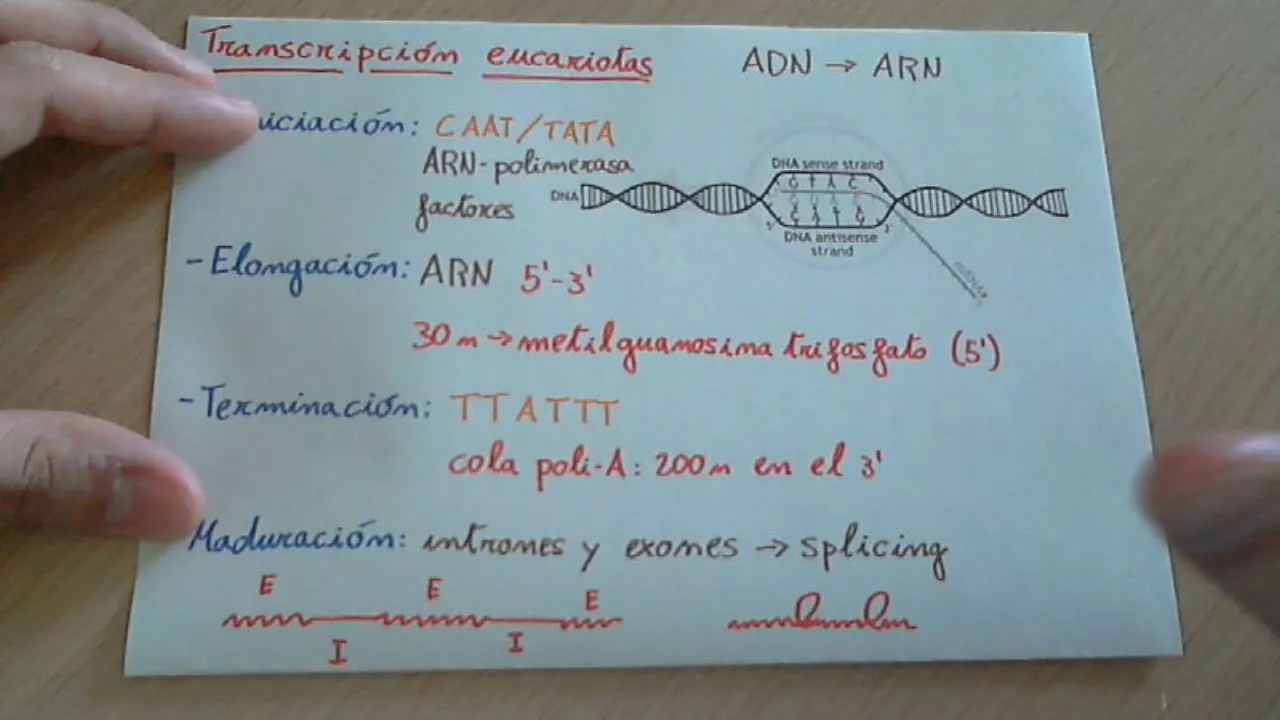 Transcripción eucariotas
ADN → ARN
niciación: CAAT/TATA
ARN-polimerasa
factores
DNA
DNA sense strand
G T A C
G A T G
5' 3'
DNA antisense
strand
mRNA
- Elongación: ARN 5'-3'
30n → metilguanosina trifosfato (5')
- Terminación: TTATTT
cola poli-A: 200n en el 3'
Maduración: intrones y exones → splicing
E E E
I I